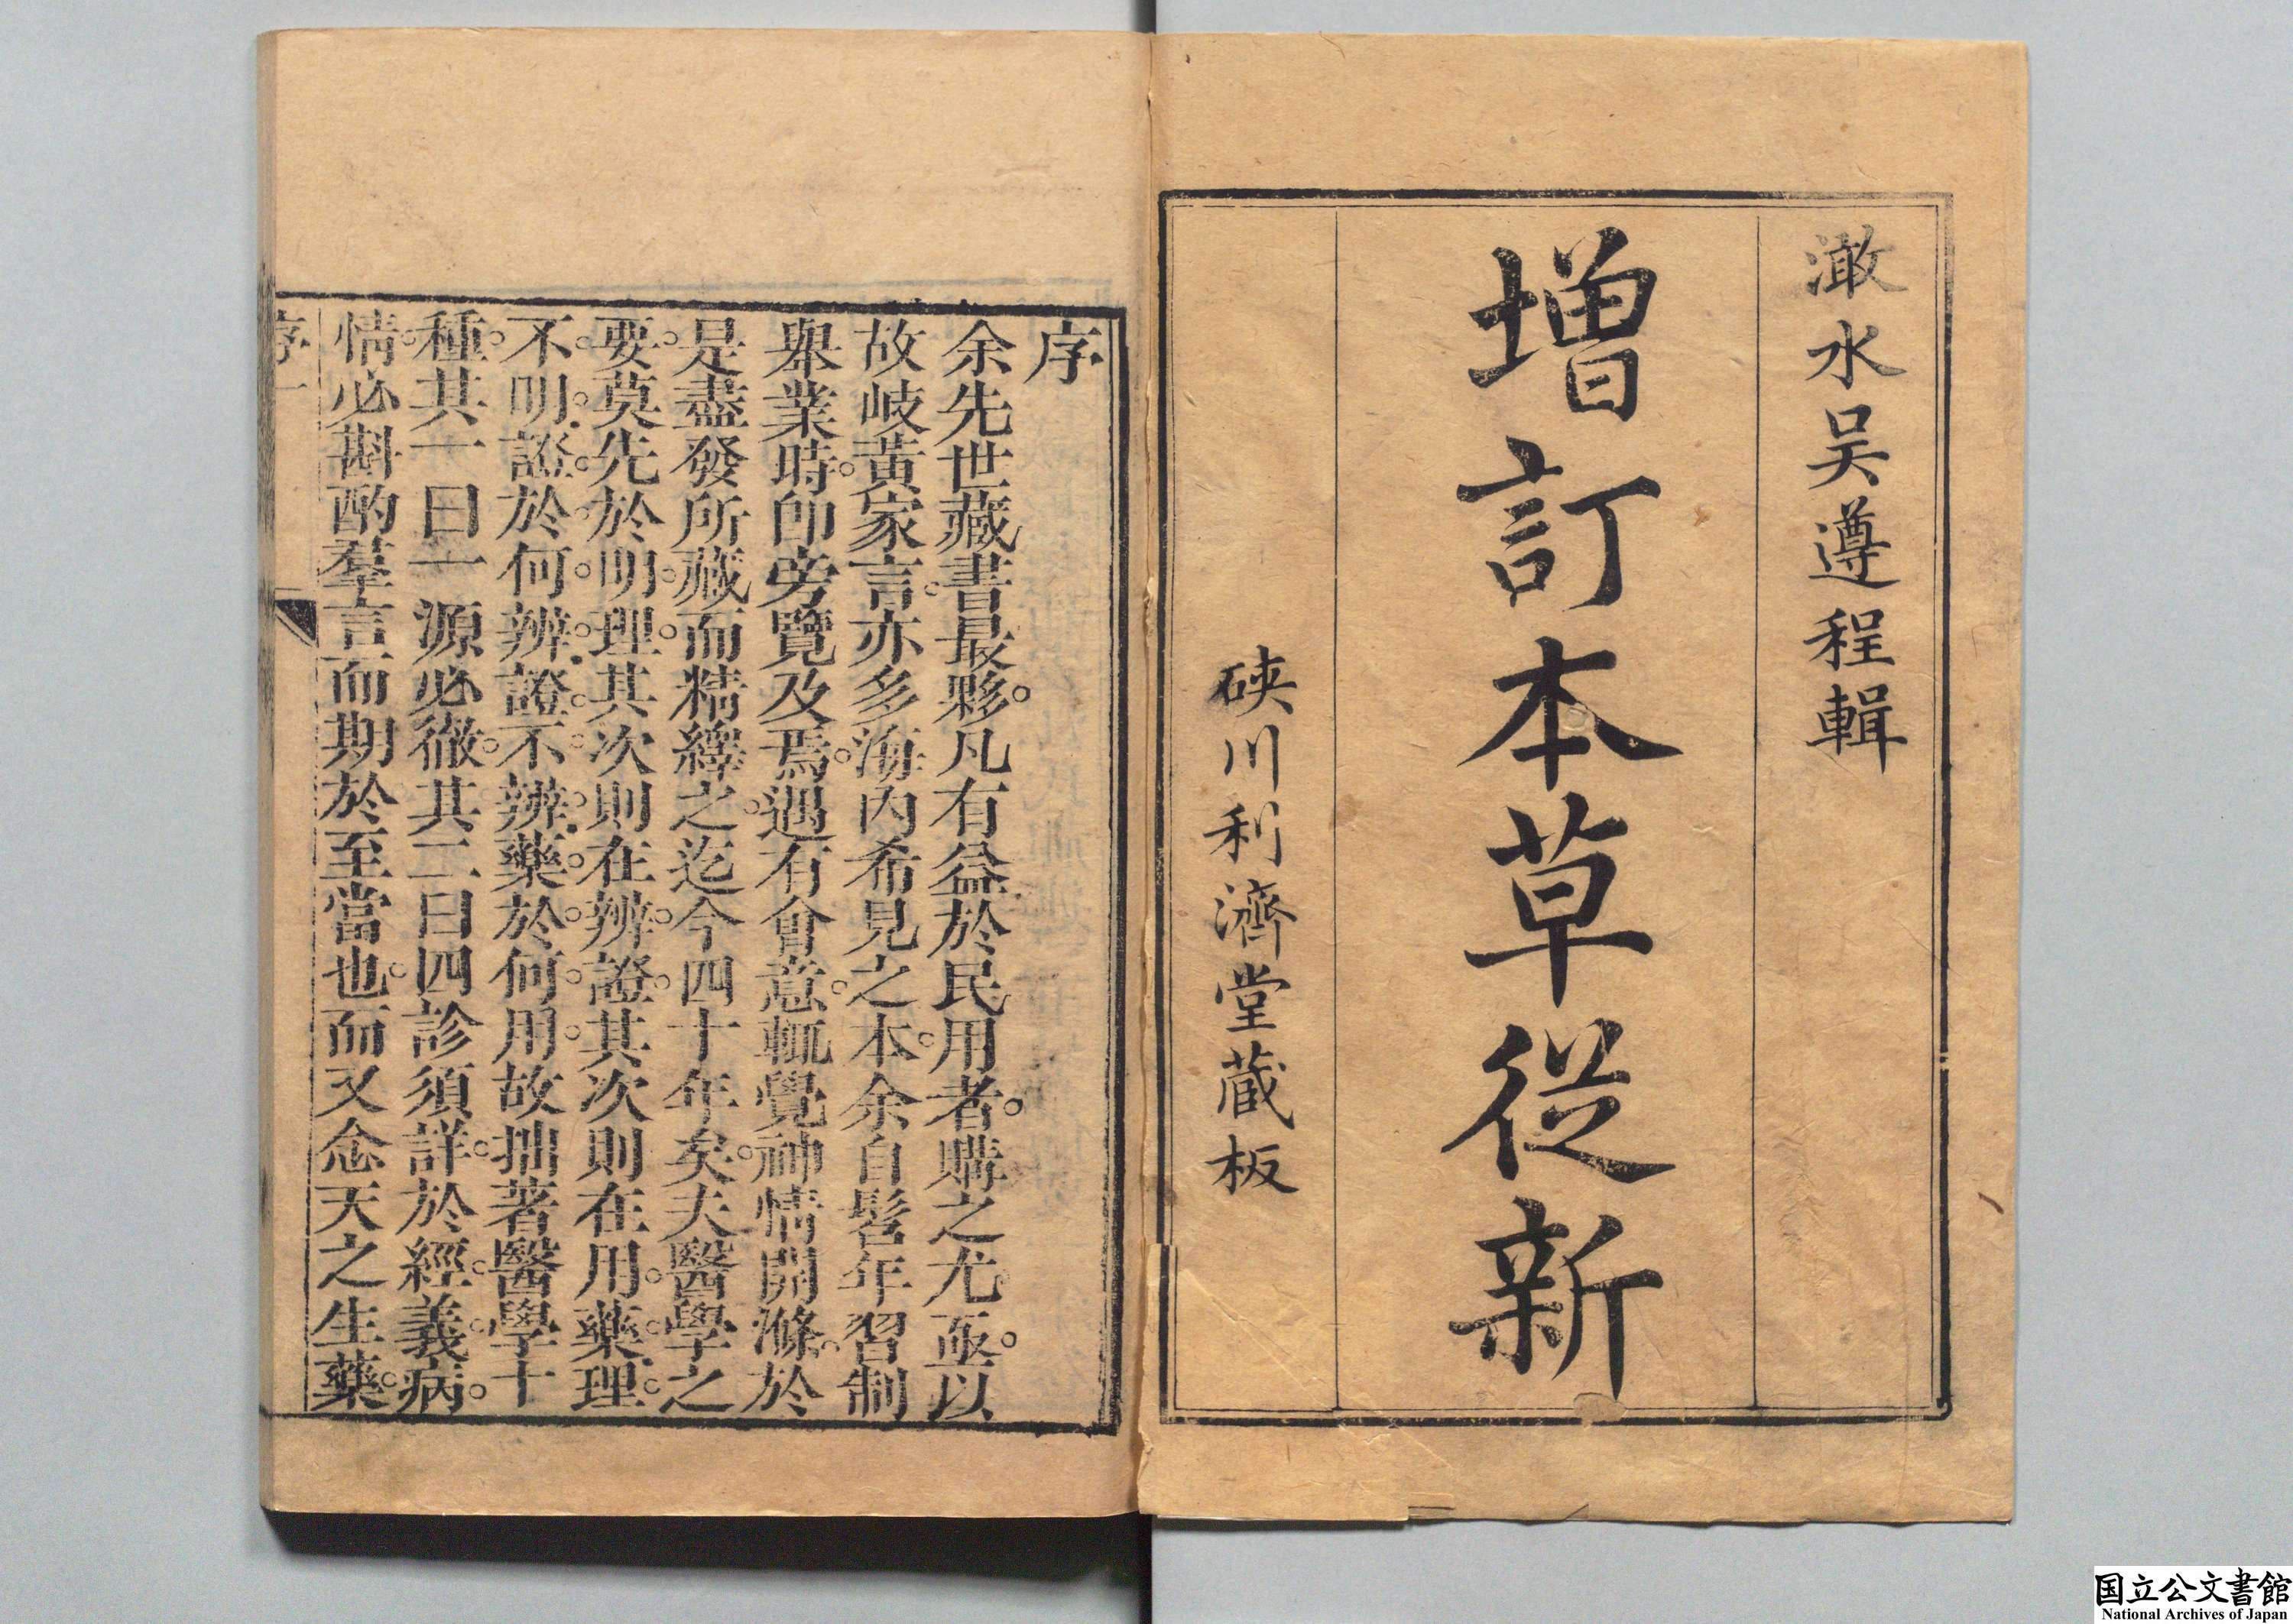 澉水吴遵程輯
增訂本草從新
硤川利濟堂藏板
序
余先世藏書最夥。凡有益於民用者。購之尤亟。以
故岐黃家言。亦多海內希見之本。余自髫年習制
舉業時。即旁覽及焉。遇有會意。輒覺神情開滌。於
是盡發所藏而精繹之。迄今四十年矣。夫醫學之
要。莫先於明理。其次則在辨證。其次則在用藥。理
不明。證於何辨。證不辨。藥於何用。故拙著醫學十
種。其一曰一源必徹。其二曰四診須詳。於經義。病
情。必斟酌羣言而期於至當也。而又念天之生藥
序 一
国立公文書館
National Archives of Japan